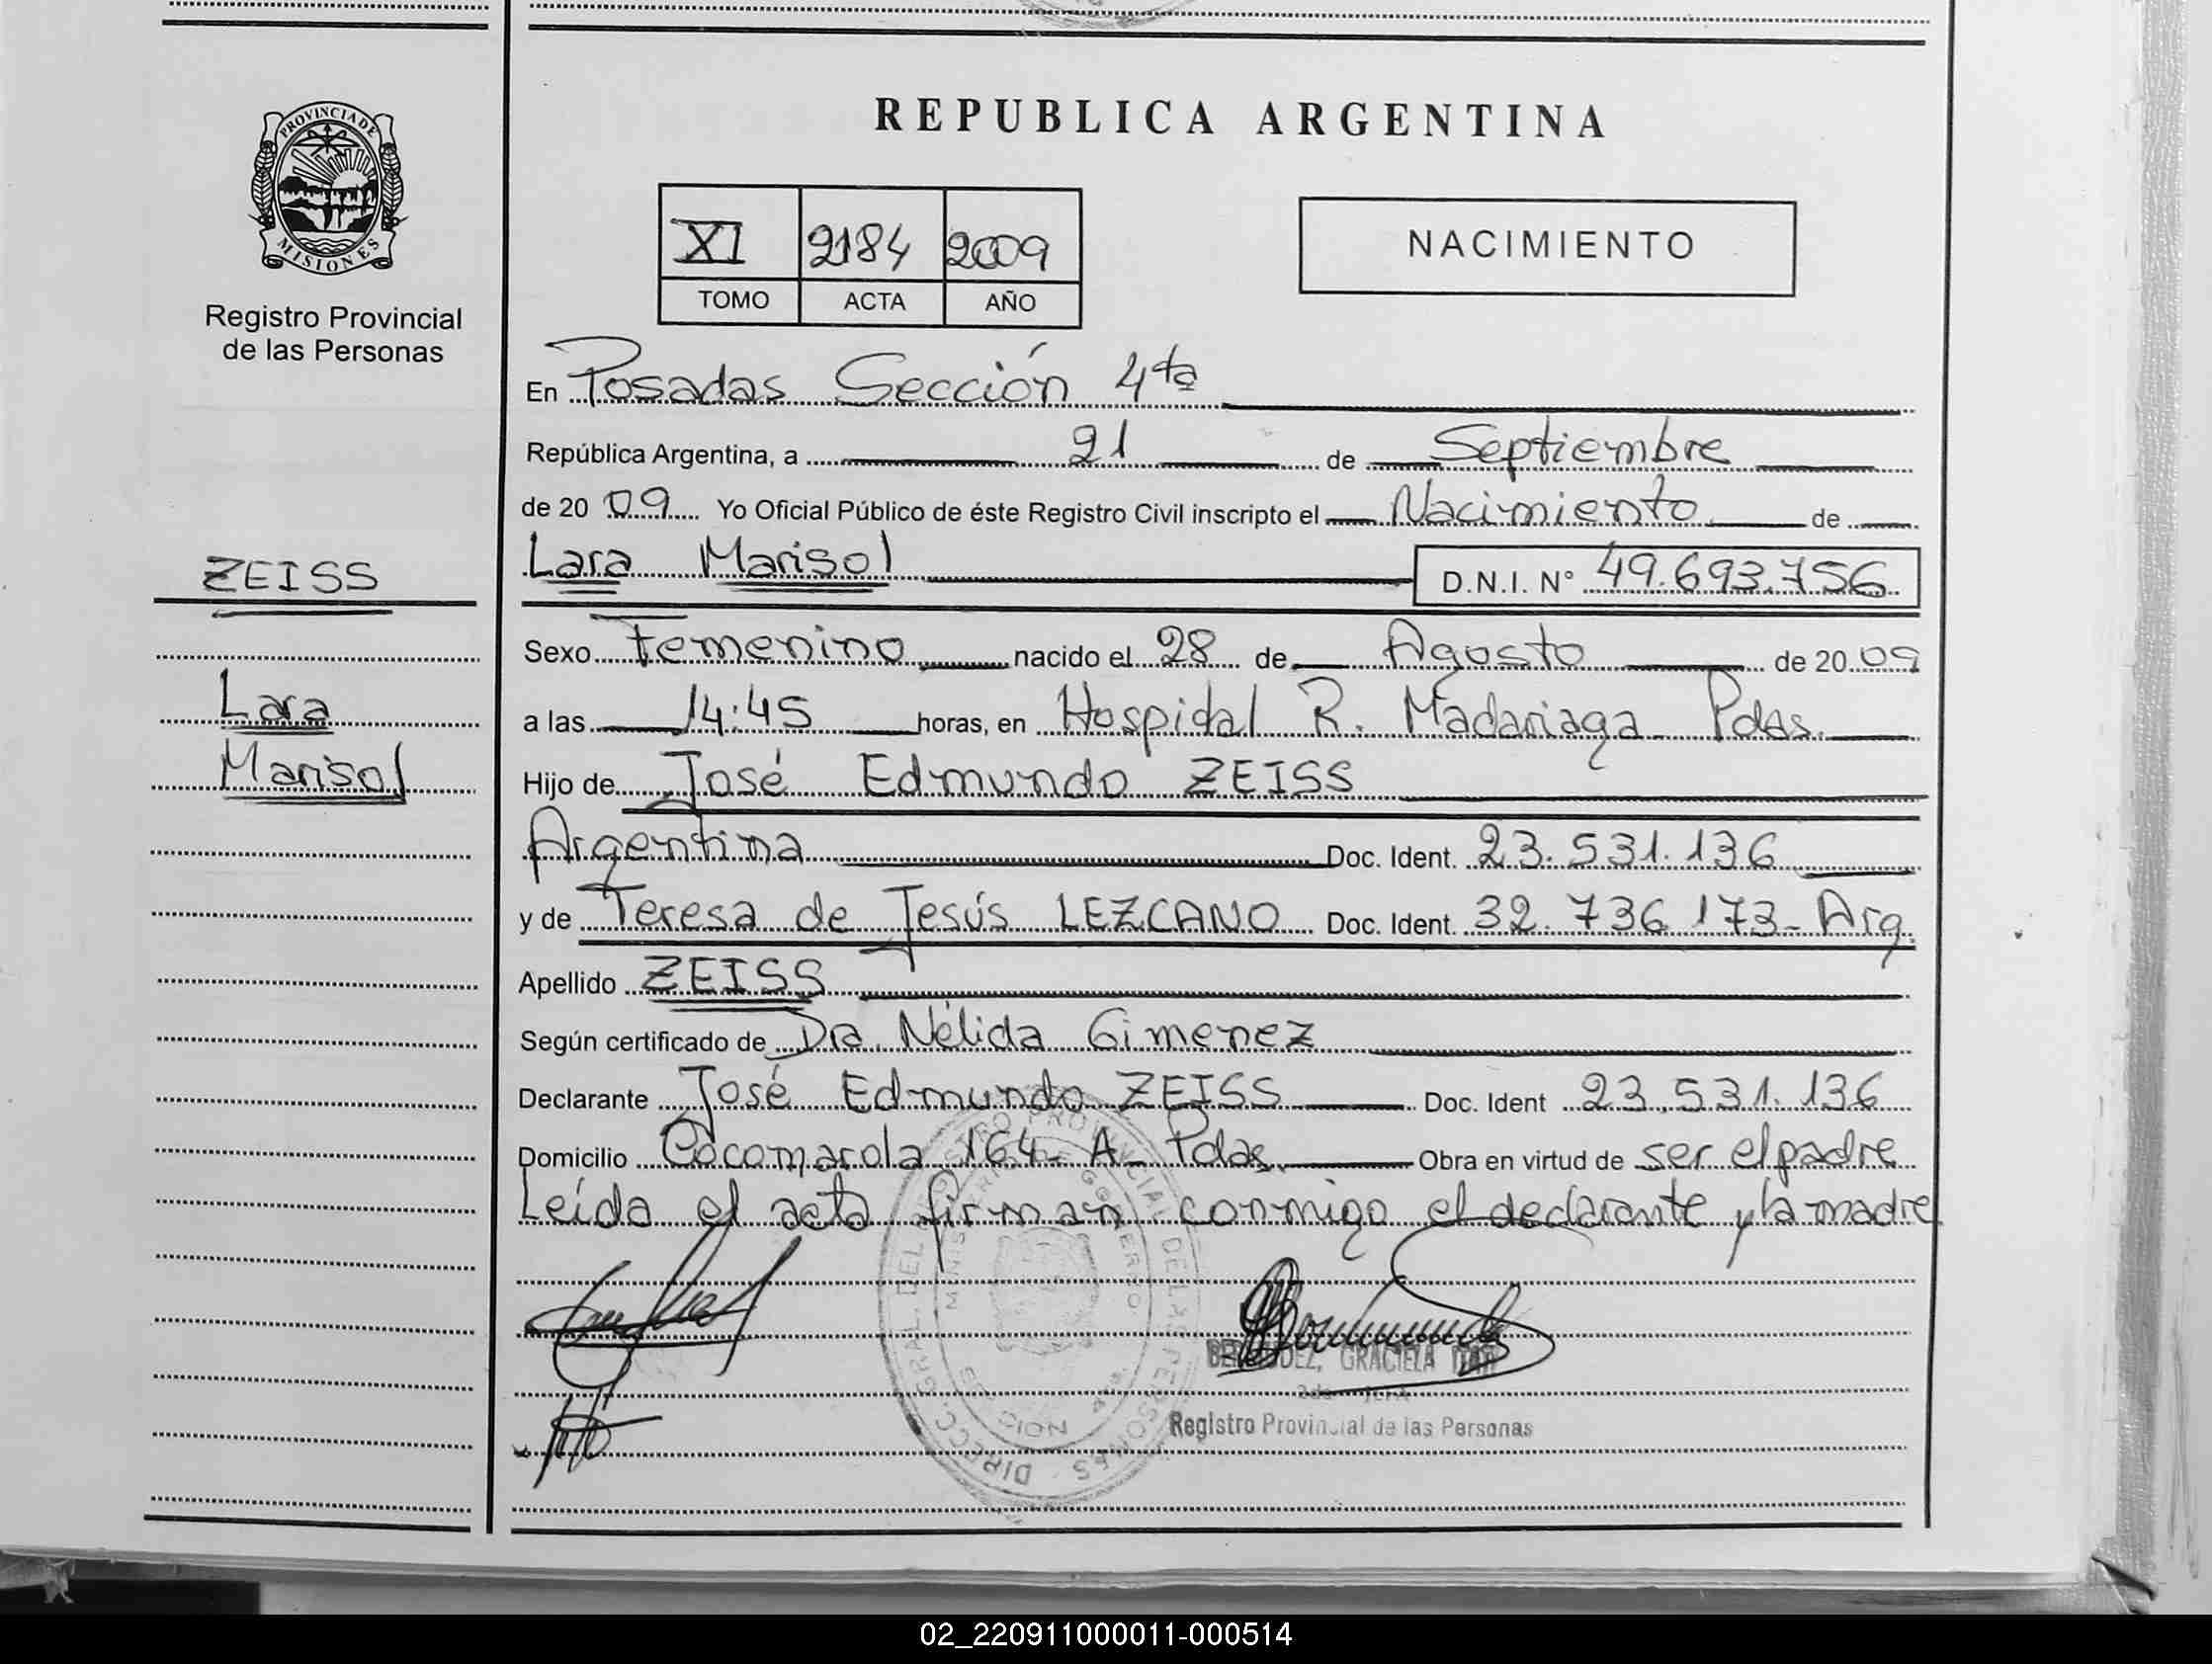 PROVINCIA DE
MISIONES
Registro Provincial
de las Personas
ZEISS
Lara
Marisol
REPUBLICA ARGENTINA
XI 2184 2009
TOMO ACTA AÑO
NACIMIENTO
En Posadas Sección 4ta
República Argentina, a 21 de Septiembre
de 20 09 Yo Oficial Público de éste Registro Civil inscripto el Nacimiento de
Lara Marisol D.N.I. N° 49.693.756
Sexo Femenino nacido el 28 de Agosto de 20 09
a las 14:45 horas, en Hospital R. Madariaga Pdas.
Hijo de José Edmundo ZEISS
Argentina Doc. Ident. 23.531.136
y de Teresa de Jesús LEZCANO Doc. Ident. 32.736.173- Arg.
Apellido ZEISS
Según certificado de Dra. Nélida Gimenez
Declarante José Edmundo ZEISS Doc. Ident 23.531.136
Domicilio Cocomarola 164- A- Pdas. Obra en virtud de ser el padre
Leída el acta firman conmigo el declarante y la madre
GRACIELA
Registro Provincial de las Personas
DIRECC. GRAL. DEL REGISTRO PROVINCIAL DE LAS PERSONAS
02_220911000011-000514